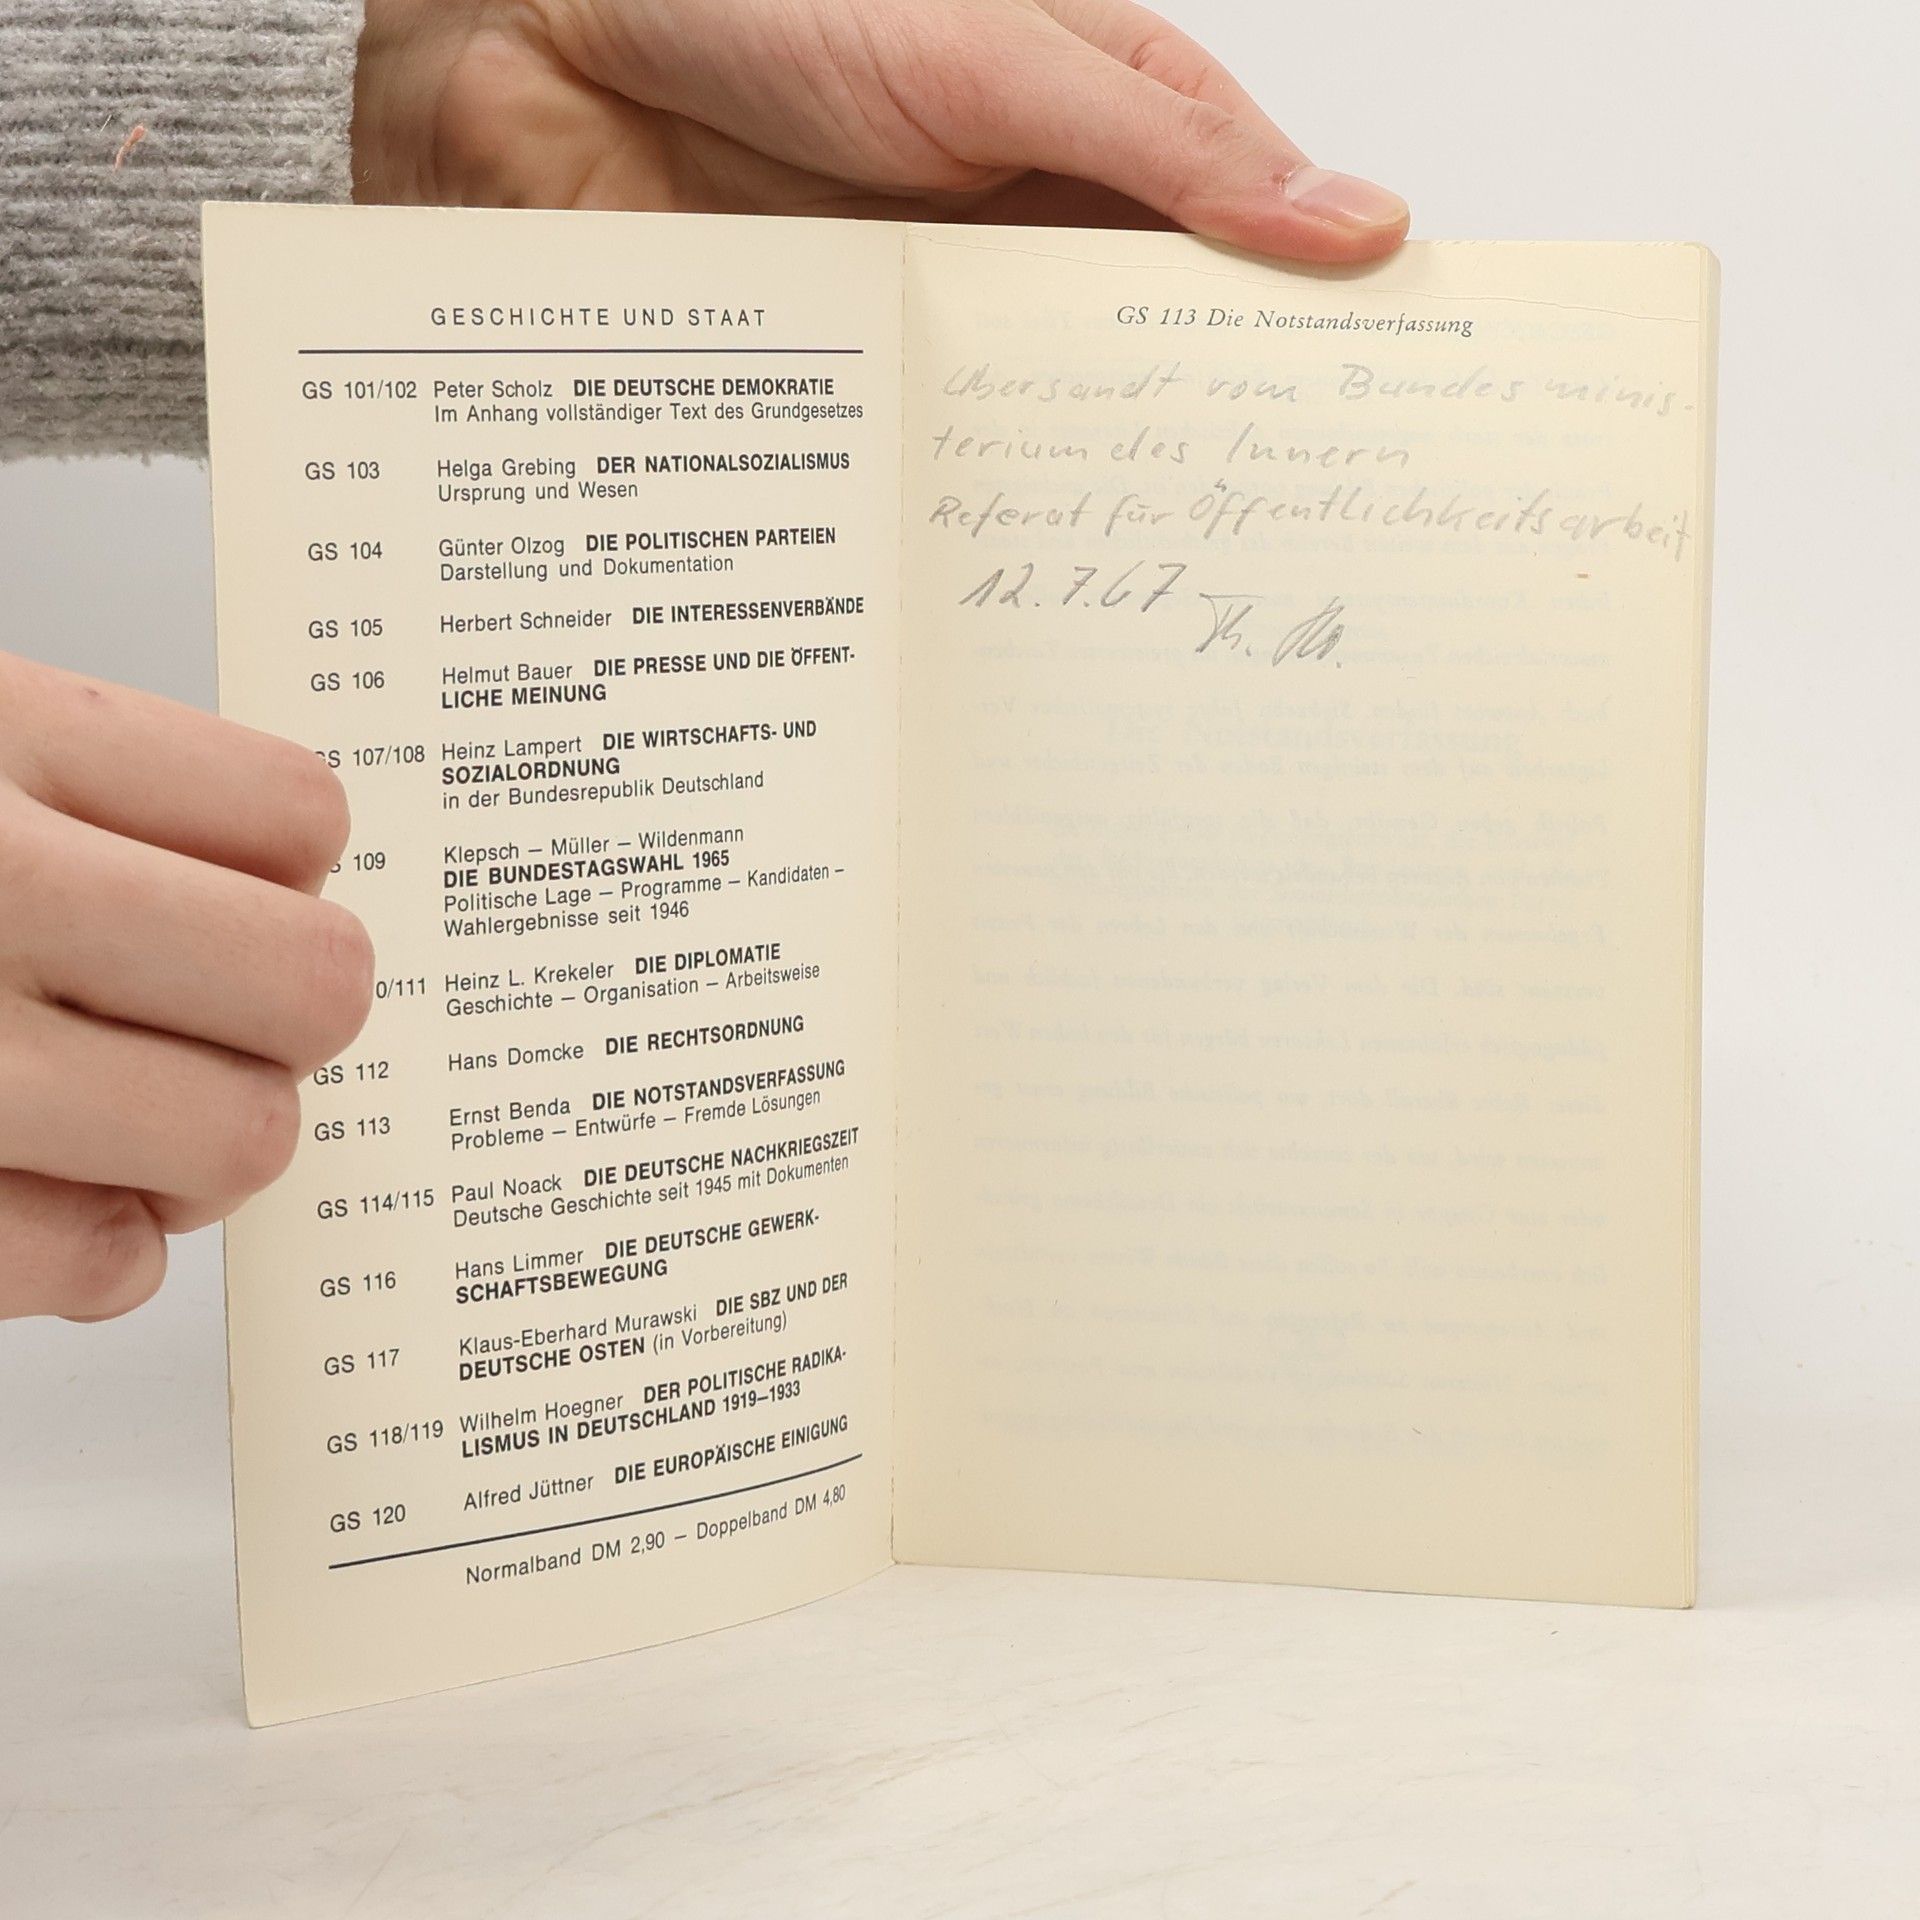 GESCHICHTE UND STAAT
GS 101/102 Peter Scholz DIE DEUTSCHE DEMOKRATIE
Im Anhang vollständiger Text des Grundgesetzes
GS 103 Helga Grebing DER NATIONALSOZIALISMUS
Ursprung und Wesen
GS 104 Günter Olzog DIE POLITISCHEN PARTEIEN
Darstellung und Dokumentation
GS 105 Herbert Schneider DIE INTERESSENVERBÄNDE
GS 106 Helmut Bauer DIE PRESSE UND DIE ÖFFENT-
LICHE MEINUNG
GS 107/108 Heinz Lampert DIE WIRTSCHAFTS- UND
SOZIALORDNUNG
in der Bundesrepublik Deutschland
109 Klepsch – Müller – Wildenmann
DIE BUNDESTAGSWAHL 1965
Politische Lage – Programme – Kandidaten –
Wahlergebnisse seit 1946
0/111 Heinz L. Krekeler DIE DIPLOMATIE
Geschichte – Organisation – Arbeitsweise
GS 112 Hans Domcke DIE RECHTSORDNUNG
GS 113 Ernst Benda DIE NOTSTANDSVERFASSUNG
Probleme – Entwürfe – Fremde Lösungen
GS 114/115 Paul Noack DIE DEUTSCHE NACHKRIEGSZEIT
Deutsche Geschichte seit 1945 mit Dokumenten
GS 116 Hans Limmer DIE DEUTSCHE GEWERK-
SCHAFTSBEWEGUNG
GS 117 Klaus-Eberhard Murawski DIE SBZ UND DER
DEUTSCHE OSTEN (in Vorbereitung)
GS 118/119 Wilhelm Hoegner DER POLITISCHE RADIKA-
LISMUS IN DEUTSCHLAND 1919–1933
GS 120 Alfred Jüttner DIE EUROPÄISCHE EINIGUNG
Normalband DM 2,90 – Doppelband DM 4,80
GS 113 Die Notstandsverfassung
Übersandt vom Bundesminis-
terium des Innern
Referat für Öffentlichkeitsarbeit
12.7.67